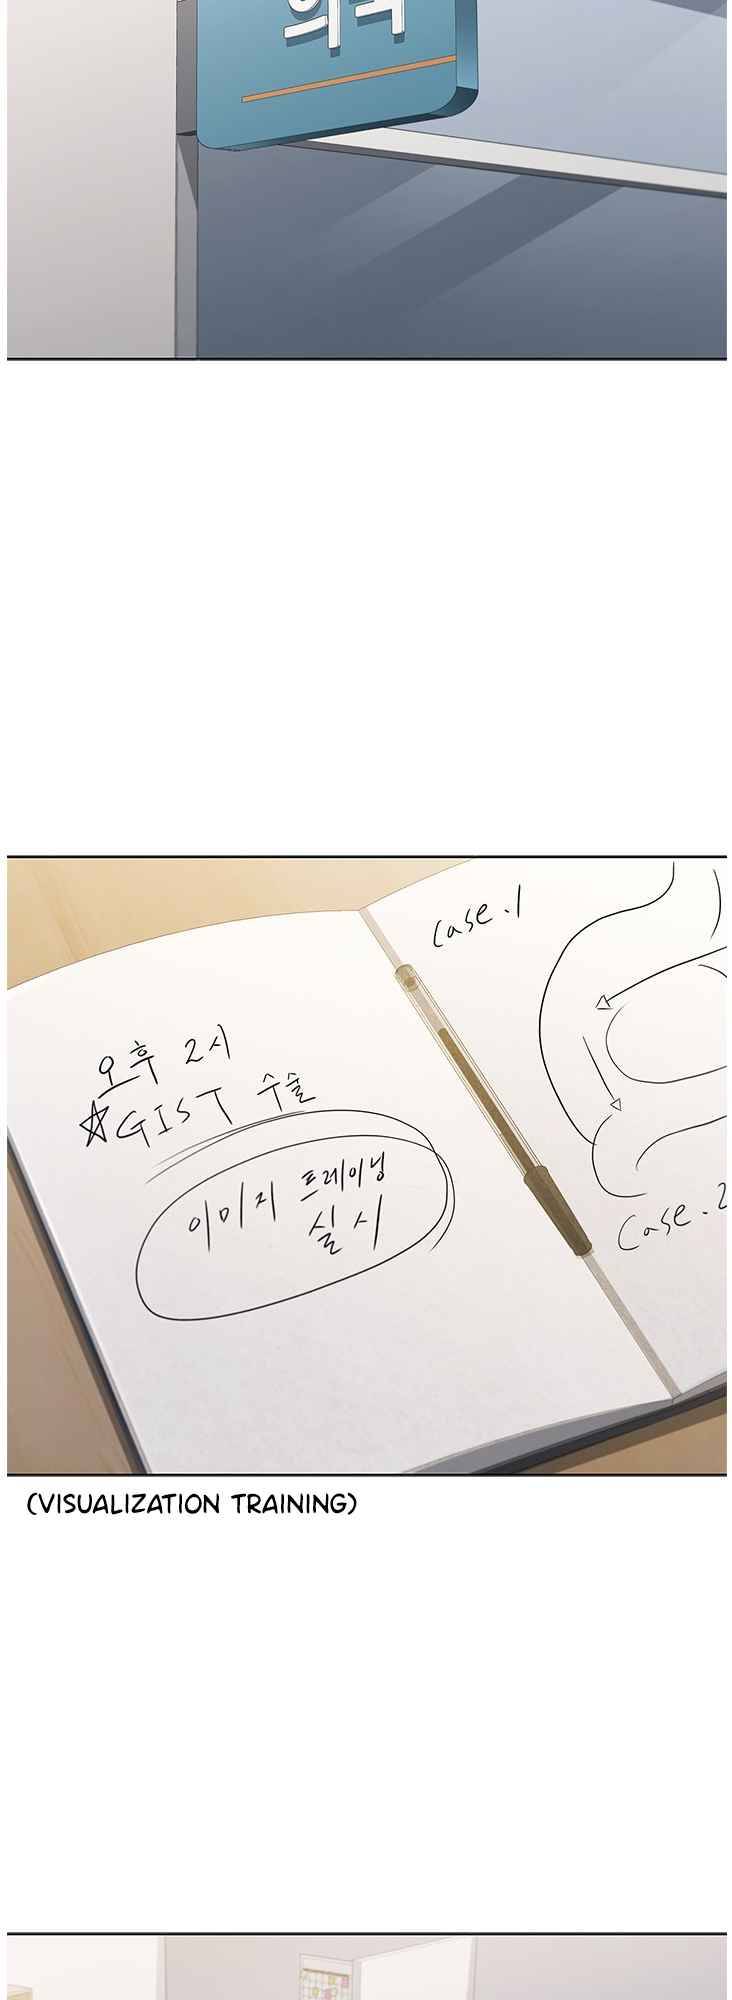 의국
case.1
오후 2시
☆GIST 수술
이미지 트레이닝
실시
case.2
(VISUALIZATION TRAINING)